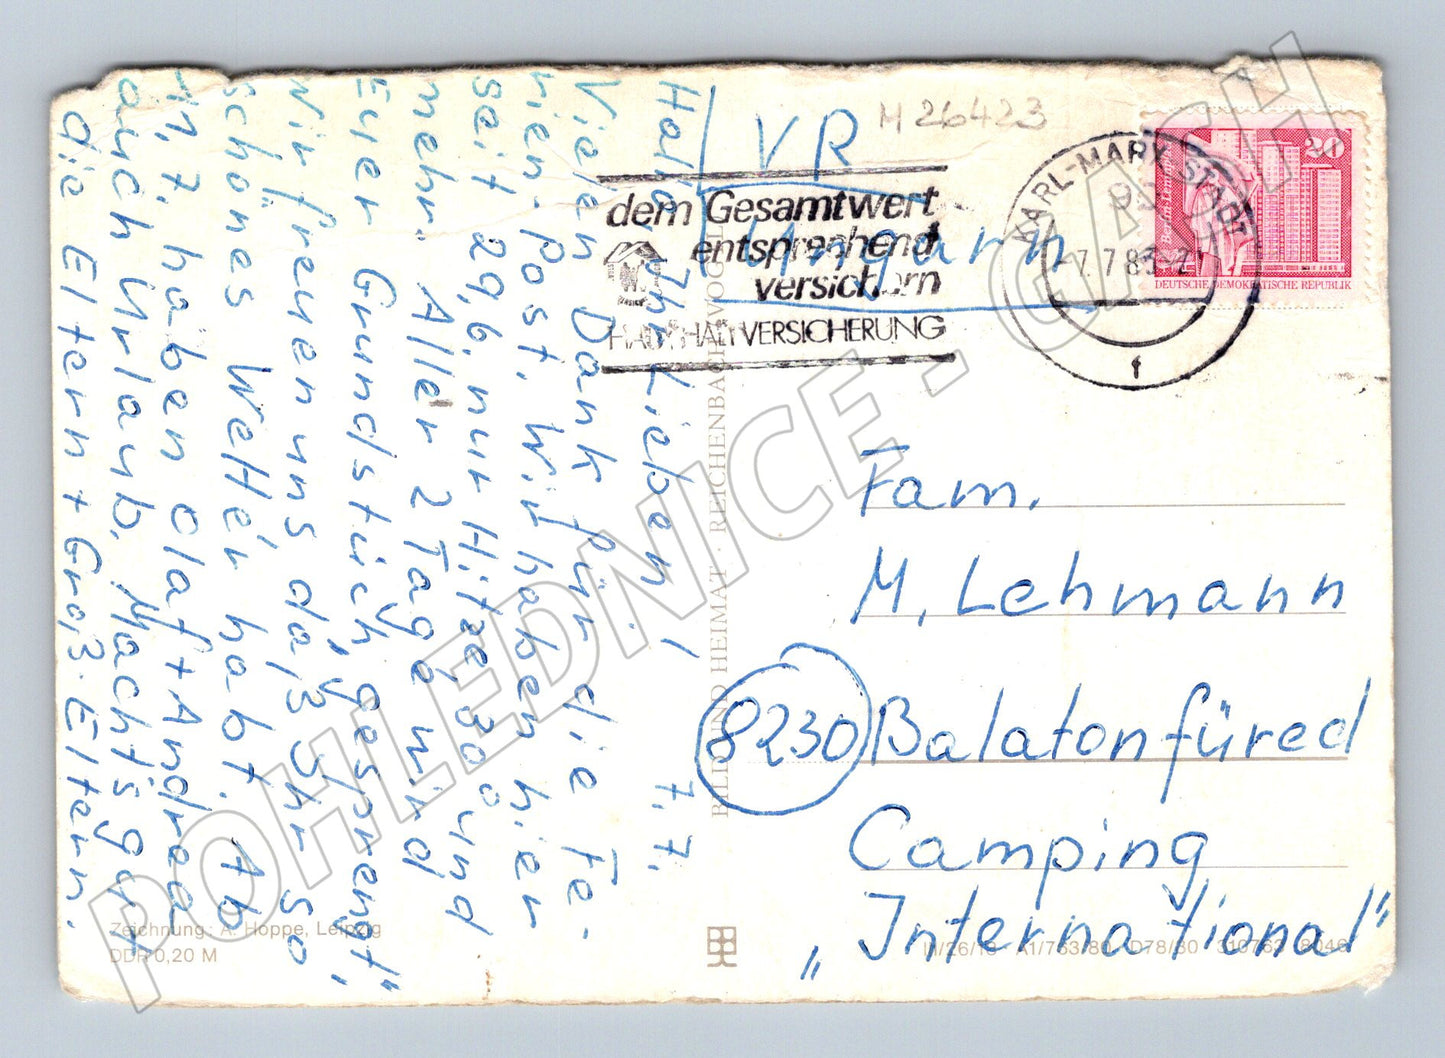 7.7.
Hallo Ihr Lieben!
Vielen Dank für die Fe-
rien-Post. Wir haben hier
seit 29,6, nur Hitze, 30° und
mehr. Aller 2 Tage wird
Euer Grundstück „gesprengt“,
Wir freuen uns da,ß Ihr so
schönes Wetter habt. Ab
11,7, haben Olaf + Andrea
auch Urlaub. Macht's gut
die Eltern + Gro,ß-Eltern.
VR
Ungarn
M 26423
dem Gesamtwert
entsprechend
versichern
HAUSHALTVERSICHERUNG
KARL-MARX-STADT
7.7.83
f
20
Berlin-Leninplatz
DEUTSCHE DEMOKRATISCHE REPUBLIK
Fam.
M. Lehmann
8230 Balatonfüred
Camping
„International“
BILD UND HEIMAT · REICHENBACH (VOGTL)
Zeichnung: A. Hoppe, Leipzig
DDR 0,20 M
A1/763/80 D78/80 310763 8046
POHLEDNICE - GASH